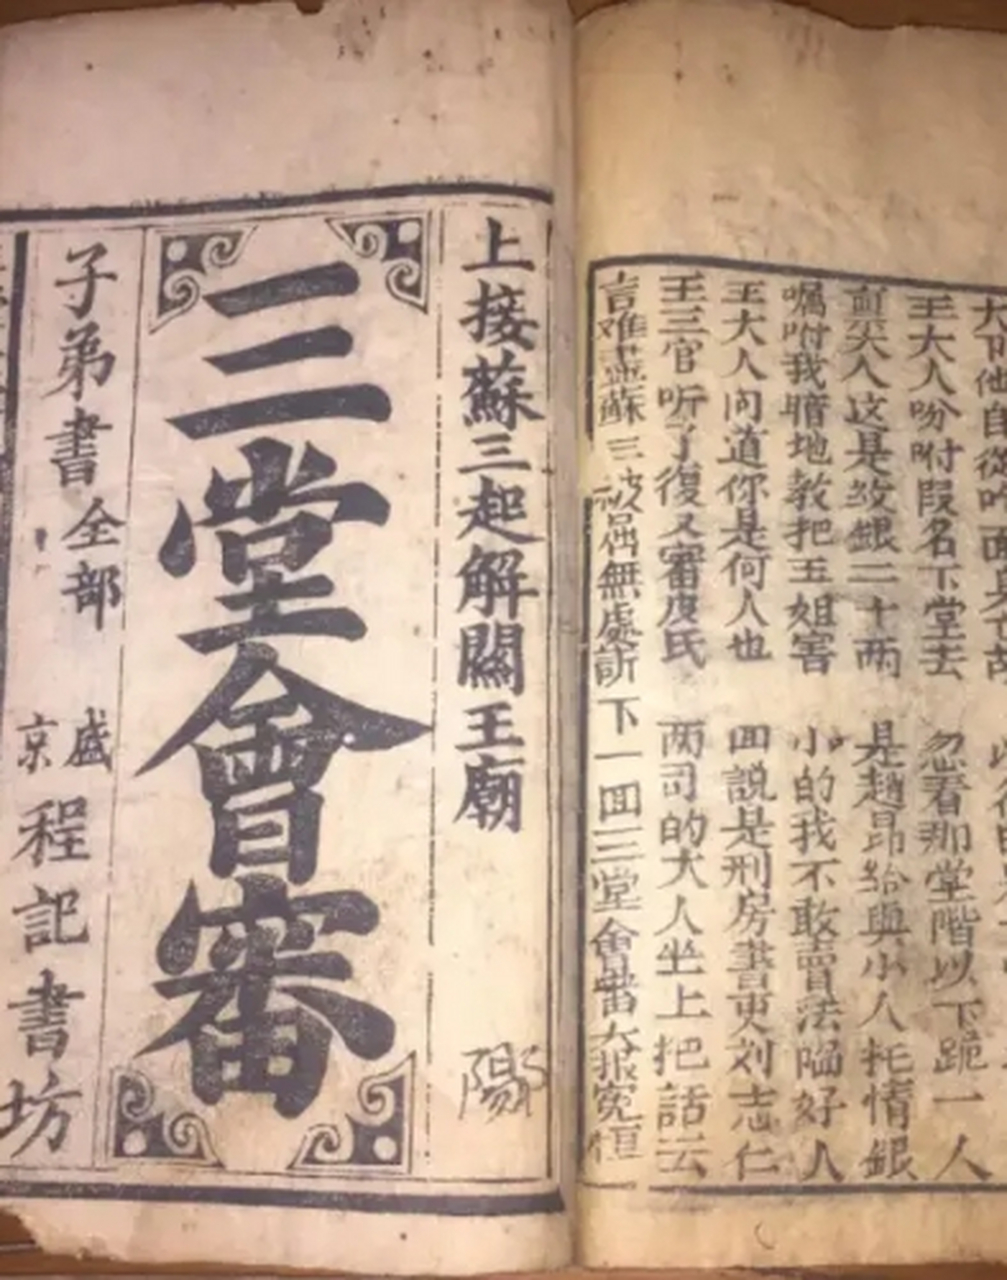 王大人吩咐叚名下堂去 忽看那堂階以下跪一人
人这是紋銀二十两 是趙昂給與小人托情銀
嘱咐我暗地教把玉姐害 小的我不敢賣法陥好人
王大人问道你是何人也 回説是刑房書吏刘志仁
王三官听了復又審皮氏 两司的大人坐上把話云
言难盡蘇三被屈無處訴 下一回三堂會審大报冤恒
上接蘇三起解關王廟
三堂會審
子弟書全部 盛京程記書坊